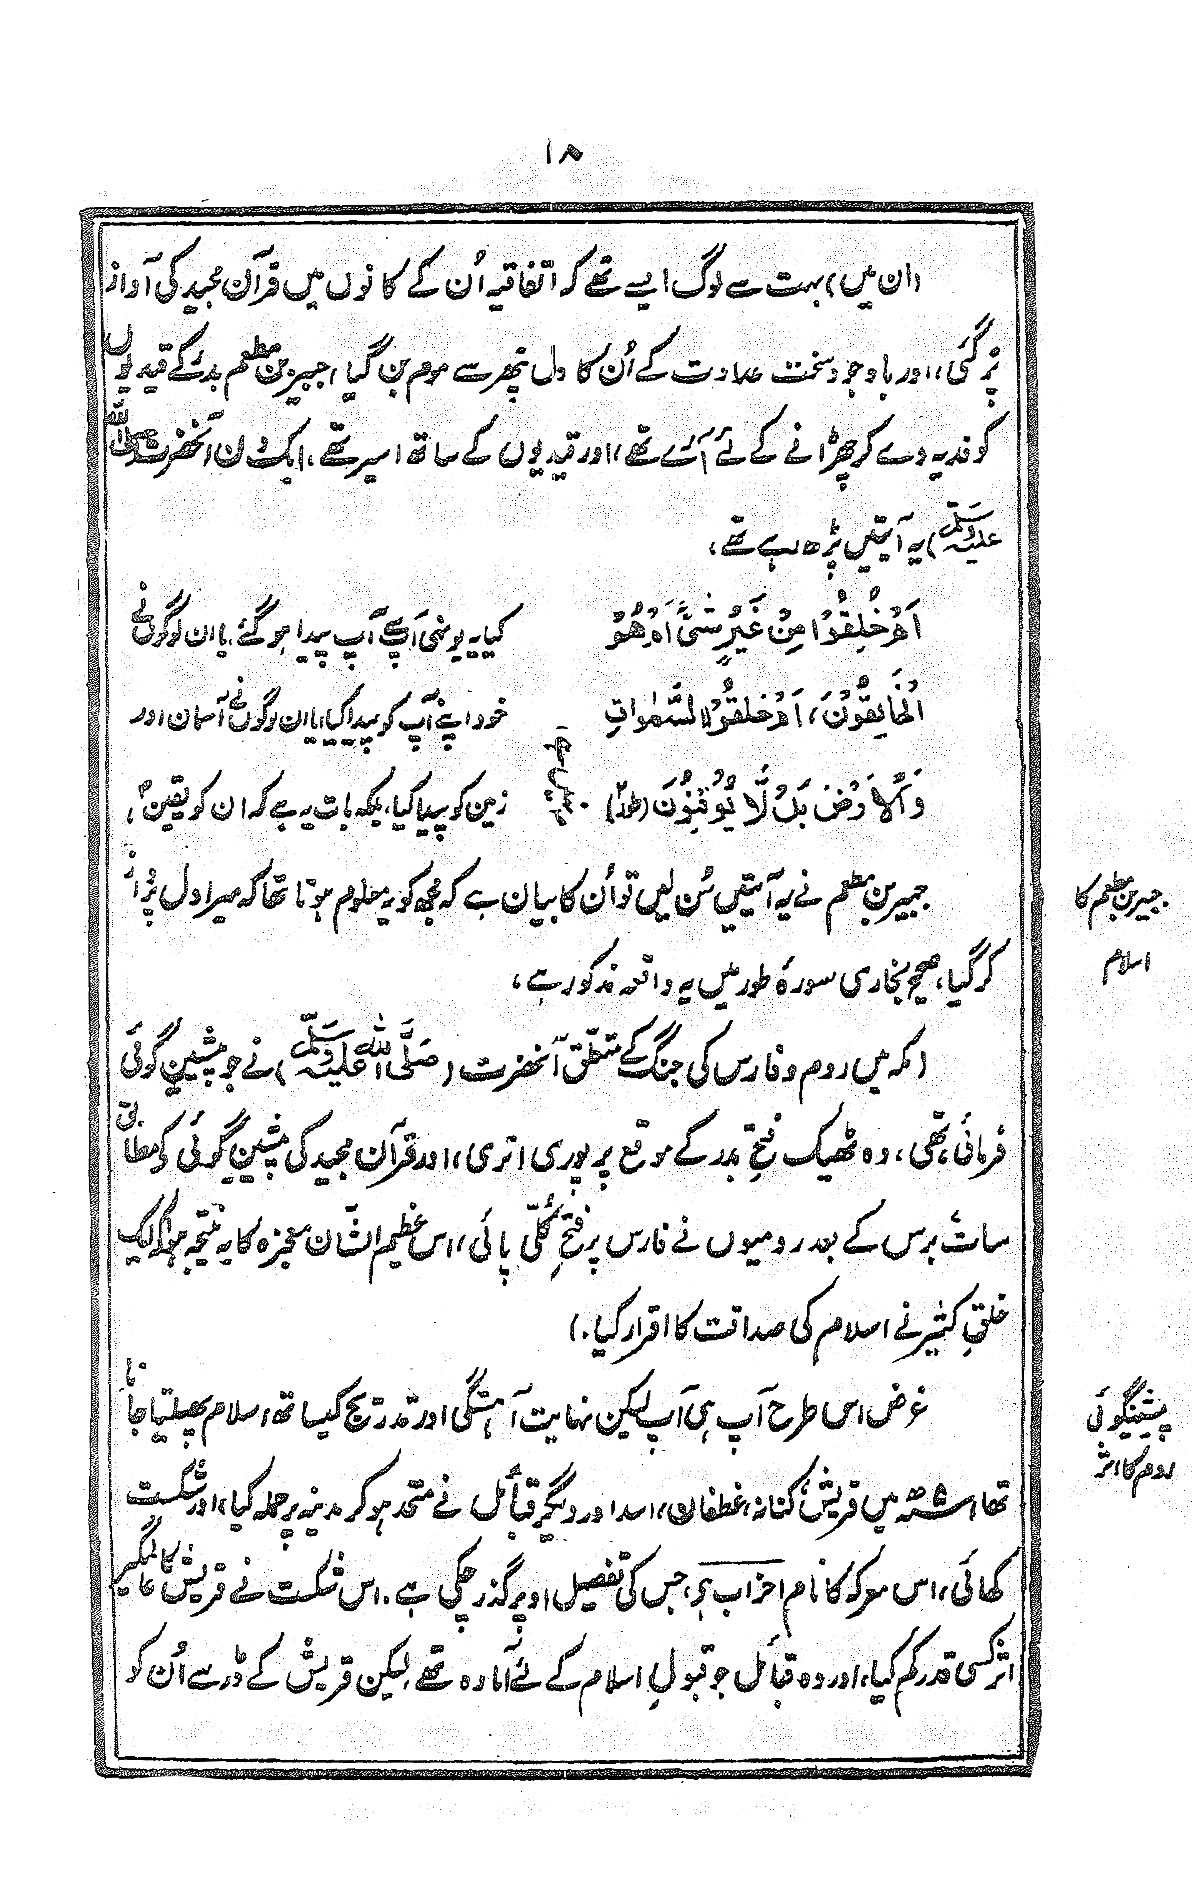 ۱۸
(ان میں) بہت سے لوگ ایسے تھے کہ اتفاقیہ اُن کے کانوں میں قرآن مجید کی آواز
پڑ گئی، اور باوجود سخت عداوت کے اُن کا دل پتھر سے موم بن گیا، جبیر بن مطعم بدر کے قیدیوں
کو فدیہ دے کر چھڑانے کے لئے آئے تھے، اور قیدیوں کے ساتھ اسیر تھے، ایک دن آنحضرت (صلی اللہ
علیہ وسلم) یہ آیتیں پڑھ رہے تھے،
اَمْ خُلِقُوْا مِنْ غَیْرِ شَیْءٍ اَمْ هُمُ
کیا یہ یونہی آپ سے آپ پیدا ہو گئے، یا ان لوگوں نے
الْخَالِقُوْنَ، اَمْ خَلَقُوا السَّمٰوَاتِ
خود اپنے آپ کو پیدا کیا، یا ان لوگوں نے آسمان اور
وَالْاَرْضَ بَلْ لَّا یُوْقِنُوْنَ (طور)
زمین کو پیدا کیا، بلکہ بات یہ ہے کہ ان کو یقین نہیں،
جبیر بن مطعم نے یہ آیتیں سُن لیں تو اُن کا بیان ہے کہ مجھ کو یہ معلوم ہوتا تھا کہ میرا دل پرواز
جبیر بن مطعم کا
کر گیا، صحیح بخاری سورۂ طور میں یہ واقعہ مذکور ہے،
اسلام
(مکہ میں روم و فارس کی جنگ کے متعلق آنحضرت (صَلَّی اللہ عَلَیْہِ وَسَلَّم) نے جو پیشین گوئی
فرمائی تھی، وہ ٹھیک فتحِ بدر کے موقع پر پوری اتری، اور قرآن مجید کی پیشین گوئی کے مطابق
سات برس کے بعد رومیوں نے فارس پر فتحِ کُلّی پائی، اس عظیم الشّان معجزہ کا یہ نتیجہ ہوا کہ ایک
خلقِ کثیر نے اسلام کی صداقت کا اقرار کیا۔)
غرض اس طرح آپ ہی آپ لیکن نہایت آہستگی اور تدریج کیساتھ اسلام پھیلتا جاتا
پیشینگوئی
تھا، سنہ ۵ھ میں قریش، کنانہ، غطفان، اسد اور دیگر قبائل نے متحد ہو کر مدینہ پر حملہ کیا، اور شکست
روم کا اثر
کھائی، اس معرکہ کا نام احزاب ہی، جس کی تفصیل اوپر گذر چکی ہے۔ اس شکست نے قریش کا عالمگیر
اثر کسی قدر کم کیا، اور وہ قبائل جو قبولِ اسلام کے لئے آمادہ تھے، لیکن قریش کے ڈر سے اُن کو